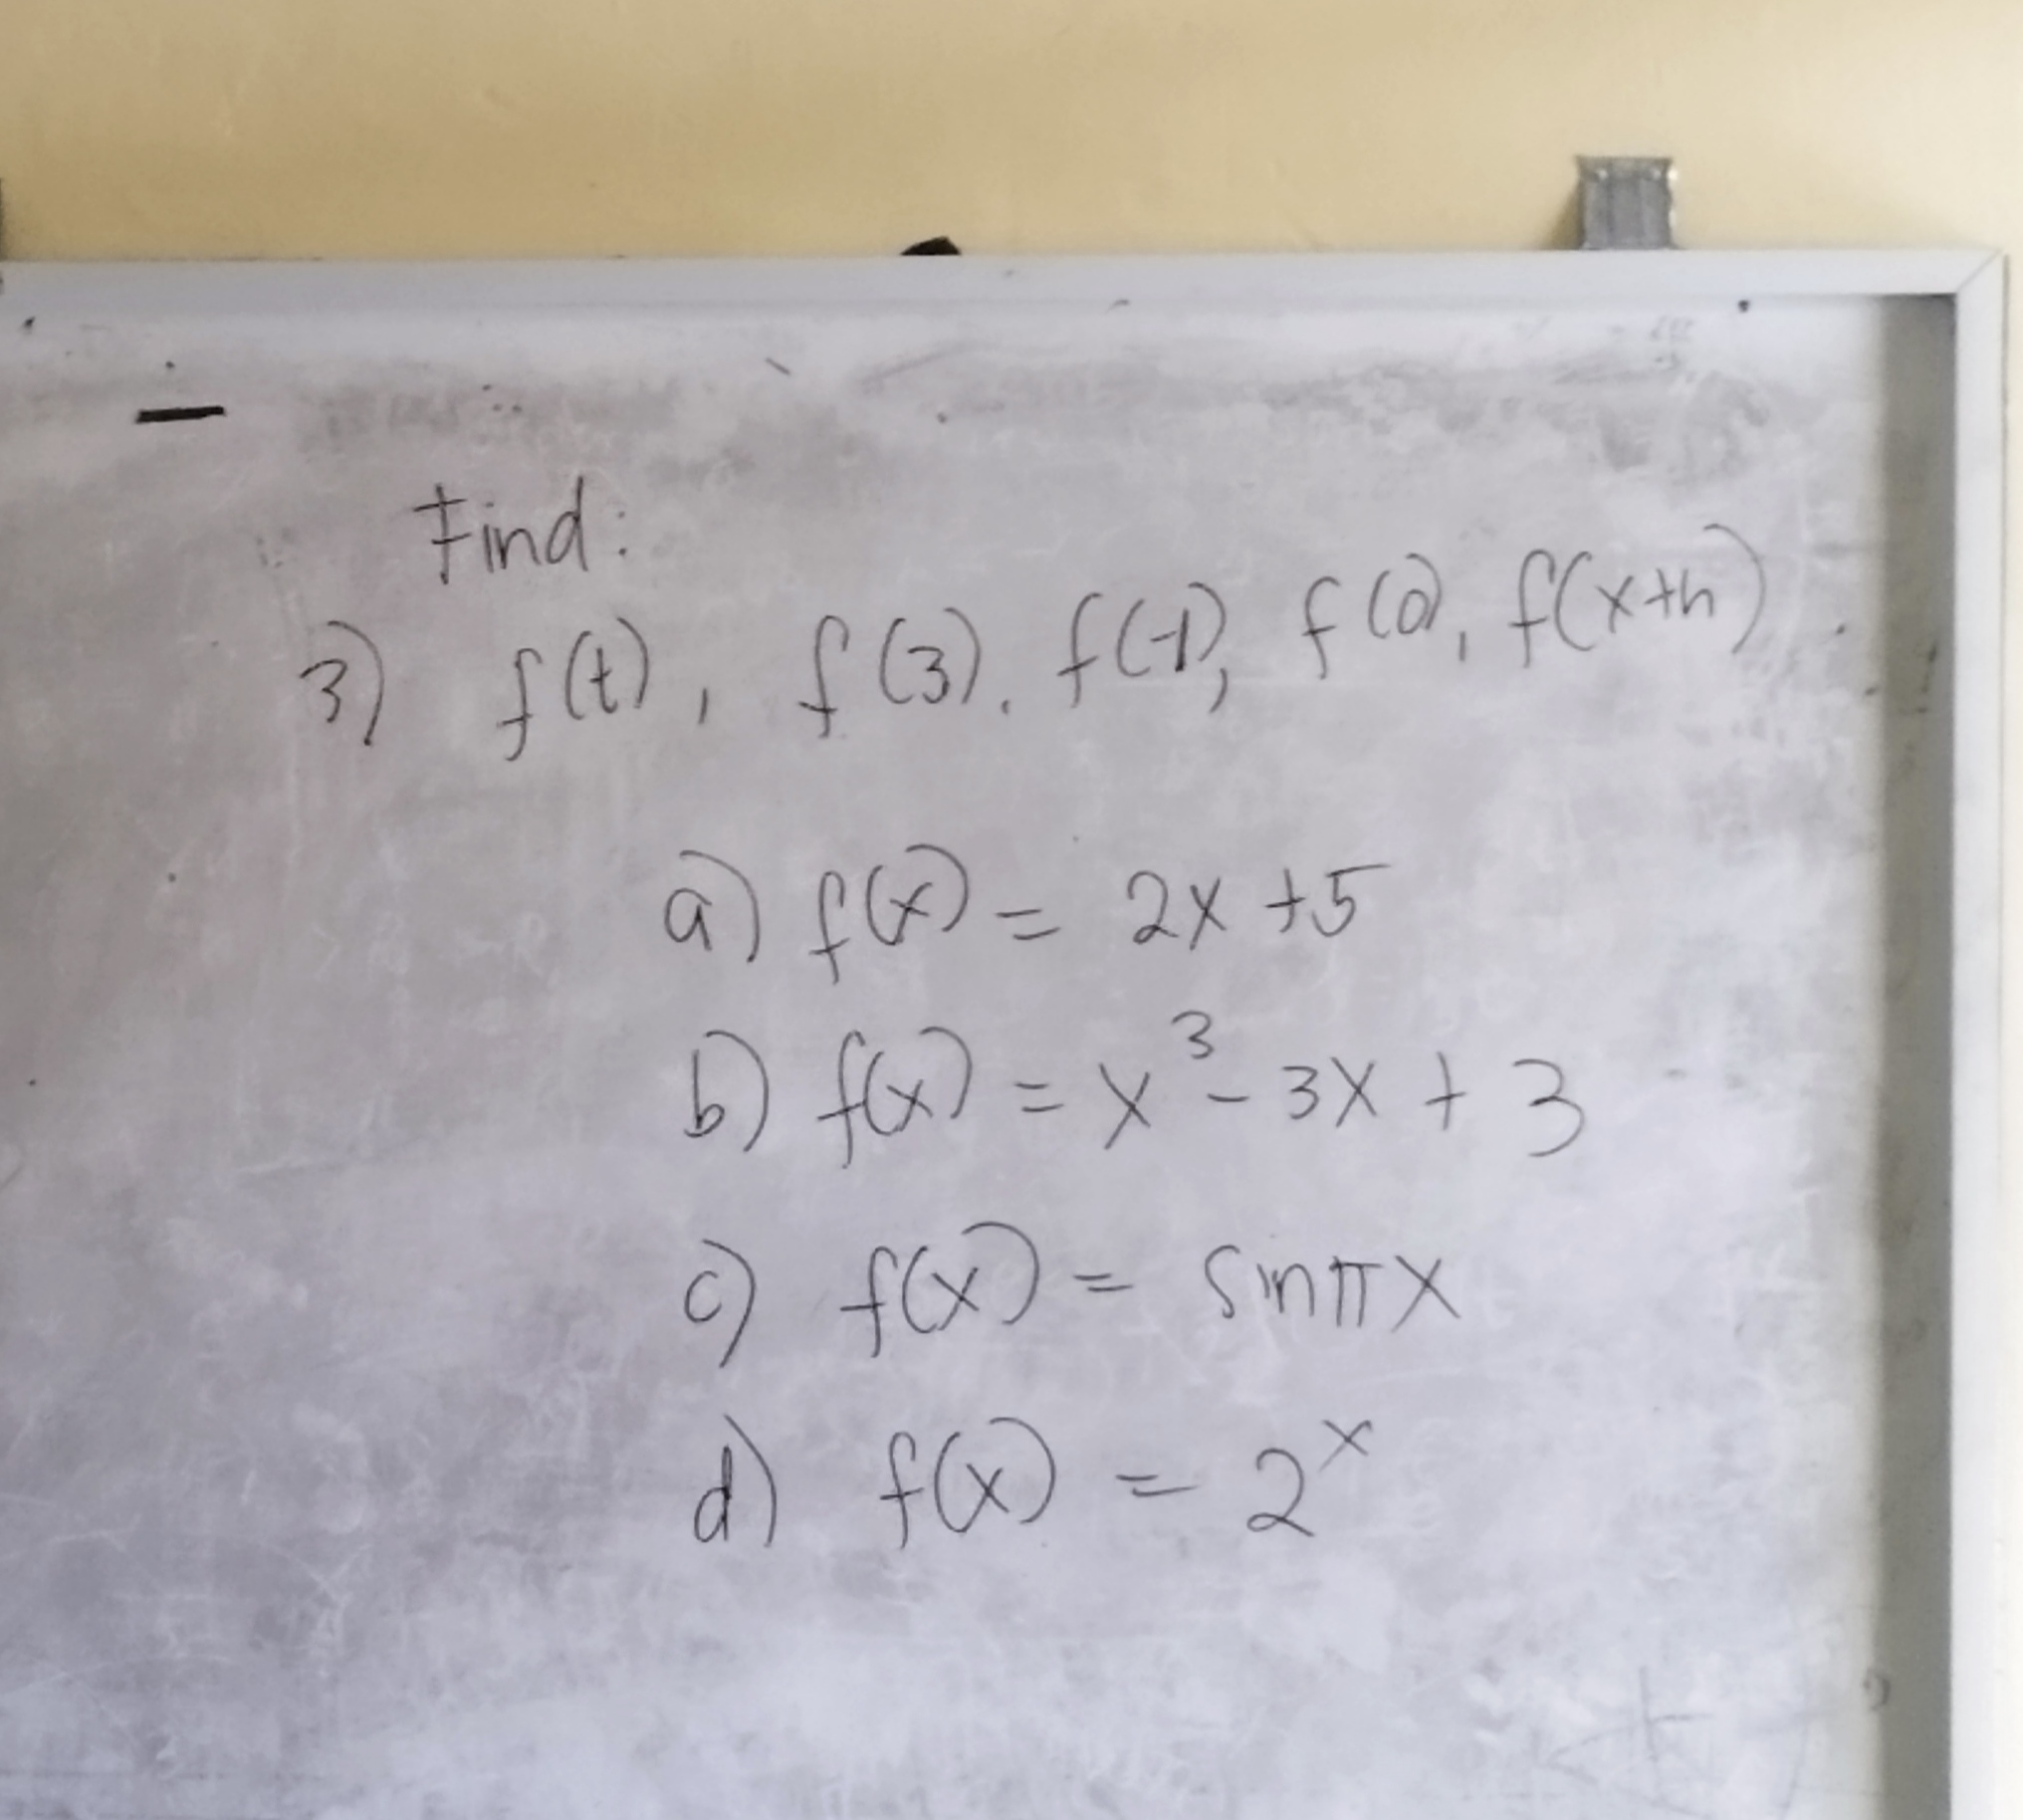 Find:
3) f(t), f(3), f(-1), f(0), f(x+h)
a) f(x) = 2x +5
b) f(x) = x³ - 3x + 3
c) f(x) = sin πx
d) f(x) = 2ˣ